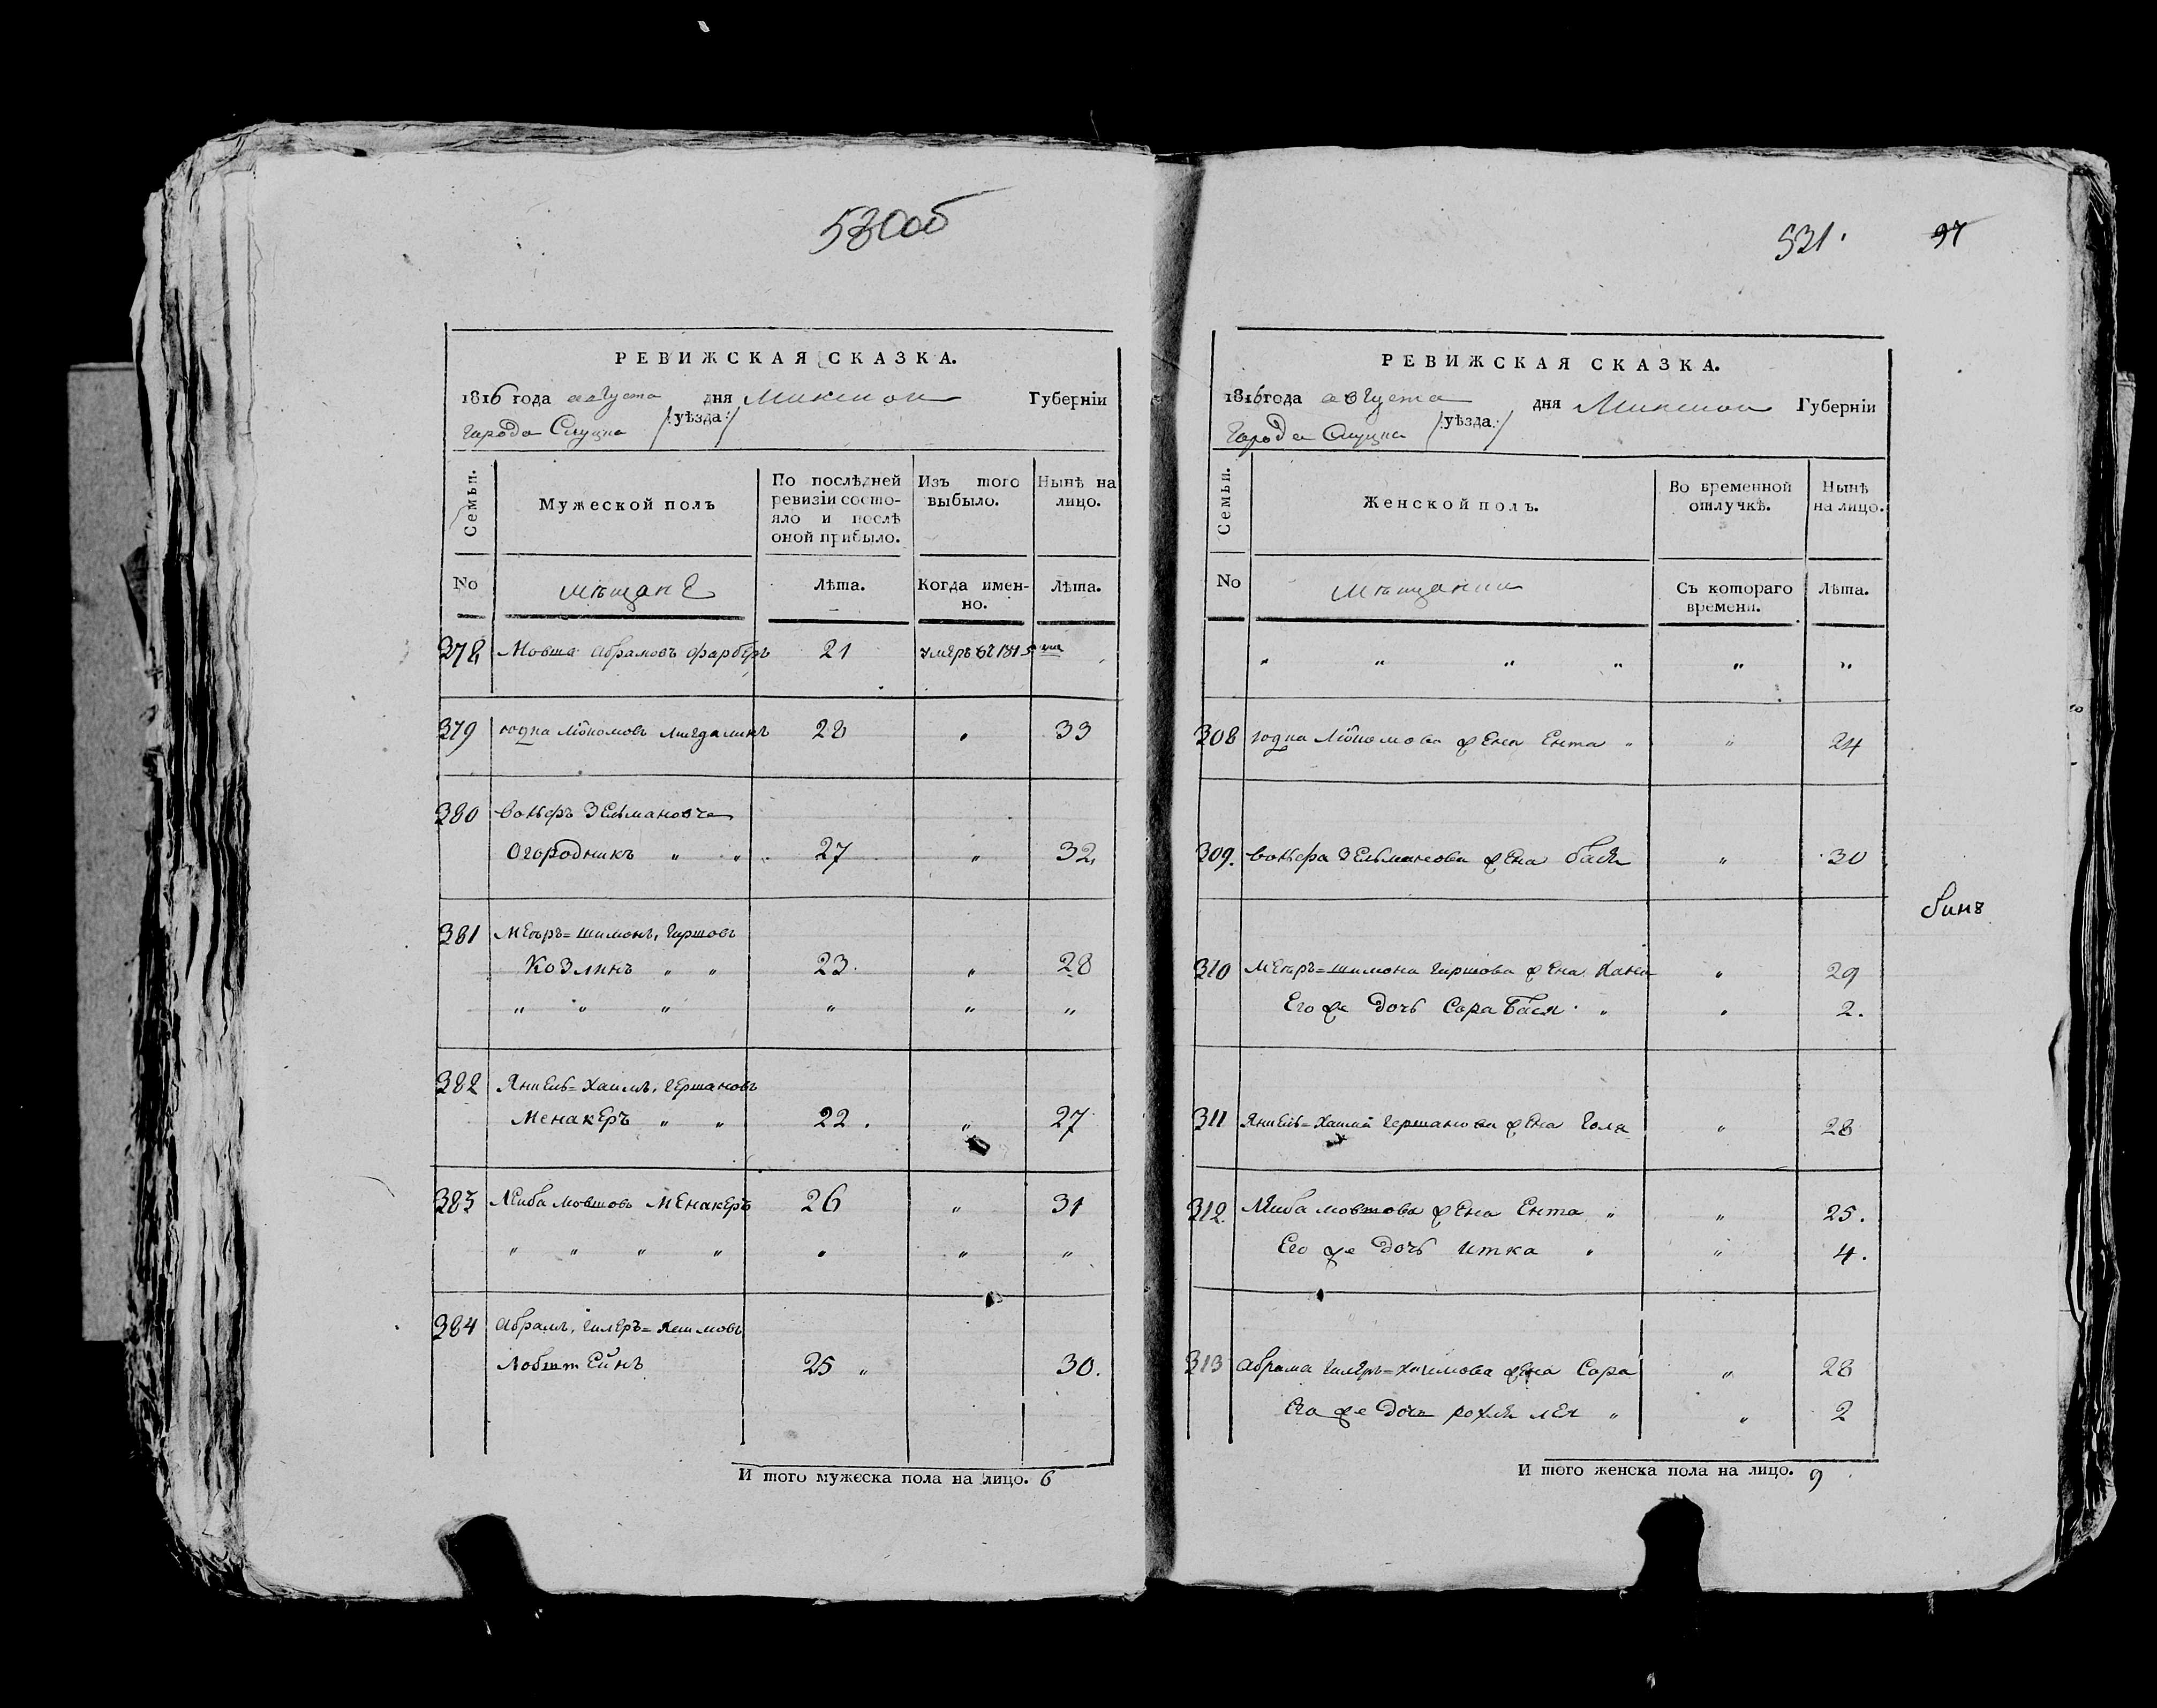 530об
РЕВИЖСКАЯ СКАЗКА.
1816 года августа дня Минской Губерніи
города Слуцка /:уѣзда:/
Семьи. Мужеской полъ По послѣдней ревизіи состояло и послѣ оной прибыло. Изъ того выбыло. Нынѣ на лицо.
No мѣщане Лѣта. Когда именно. Лѣта.
378 Мовша Абрамовъ Фарберъ 21 умеръ 1815
379 Юдка 28 " 33
380 Зельмановъ
Огородникъ " " 27 " 32
381 Мееръ=Шимонъ, Гиршовъ
Козликъ " " 23. " 28
" " " " " "
382 Янкель=Хаимъ, Гершановъ
Менакеръ " " 22. " 27
383 Лейба Мовшовъ Менакеръ 26 " 31
" " " " " " "
384 Абрамъ, Хаимовъ
Лобштейнъ 25 " 30.
И того мужеска пола на лицо. 6
531. 97
РЕВИЖСКАЯ СКАЗКА.
1816 года августа дня Минской Губерніи
города Слуцка /:уѣзда:/
Семьи. Женской полъ. Во временной отлучкѣ. Нынѣ на лицо.
No мѣщанки Съ котораго времени. Лѣта.
" " " " " "
308 Юдка жена Ента " " 24
309. Зельманова жена Бася " 30
310 Мееръ=Шимона Гиршова жена Хана " 29
Его же дочь Сора Бася " " 2.
311 Янкель=Хаима Гершанова жена Гола " 28
312 Лейба Мовшова жена Ента " " 25.
Его же дочь Итка " " 4.
313 Абрама Хаимова жена Сора " 28
Его же дочь Рохля Лея " " 2
И того женска пола на лицо. 9